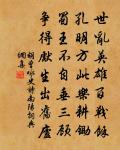 世亂英雄百戰餘
孔明方此樂耕鋤
蜀王不自垂三顧
爭得先生出舊廬
胡曾詠史詩南陽詞典
網集